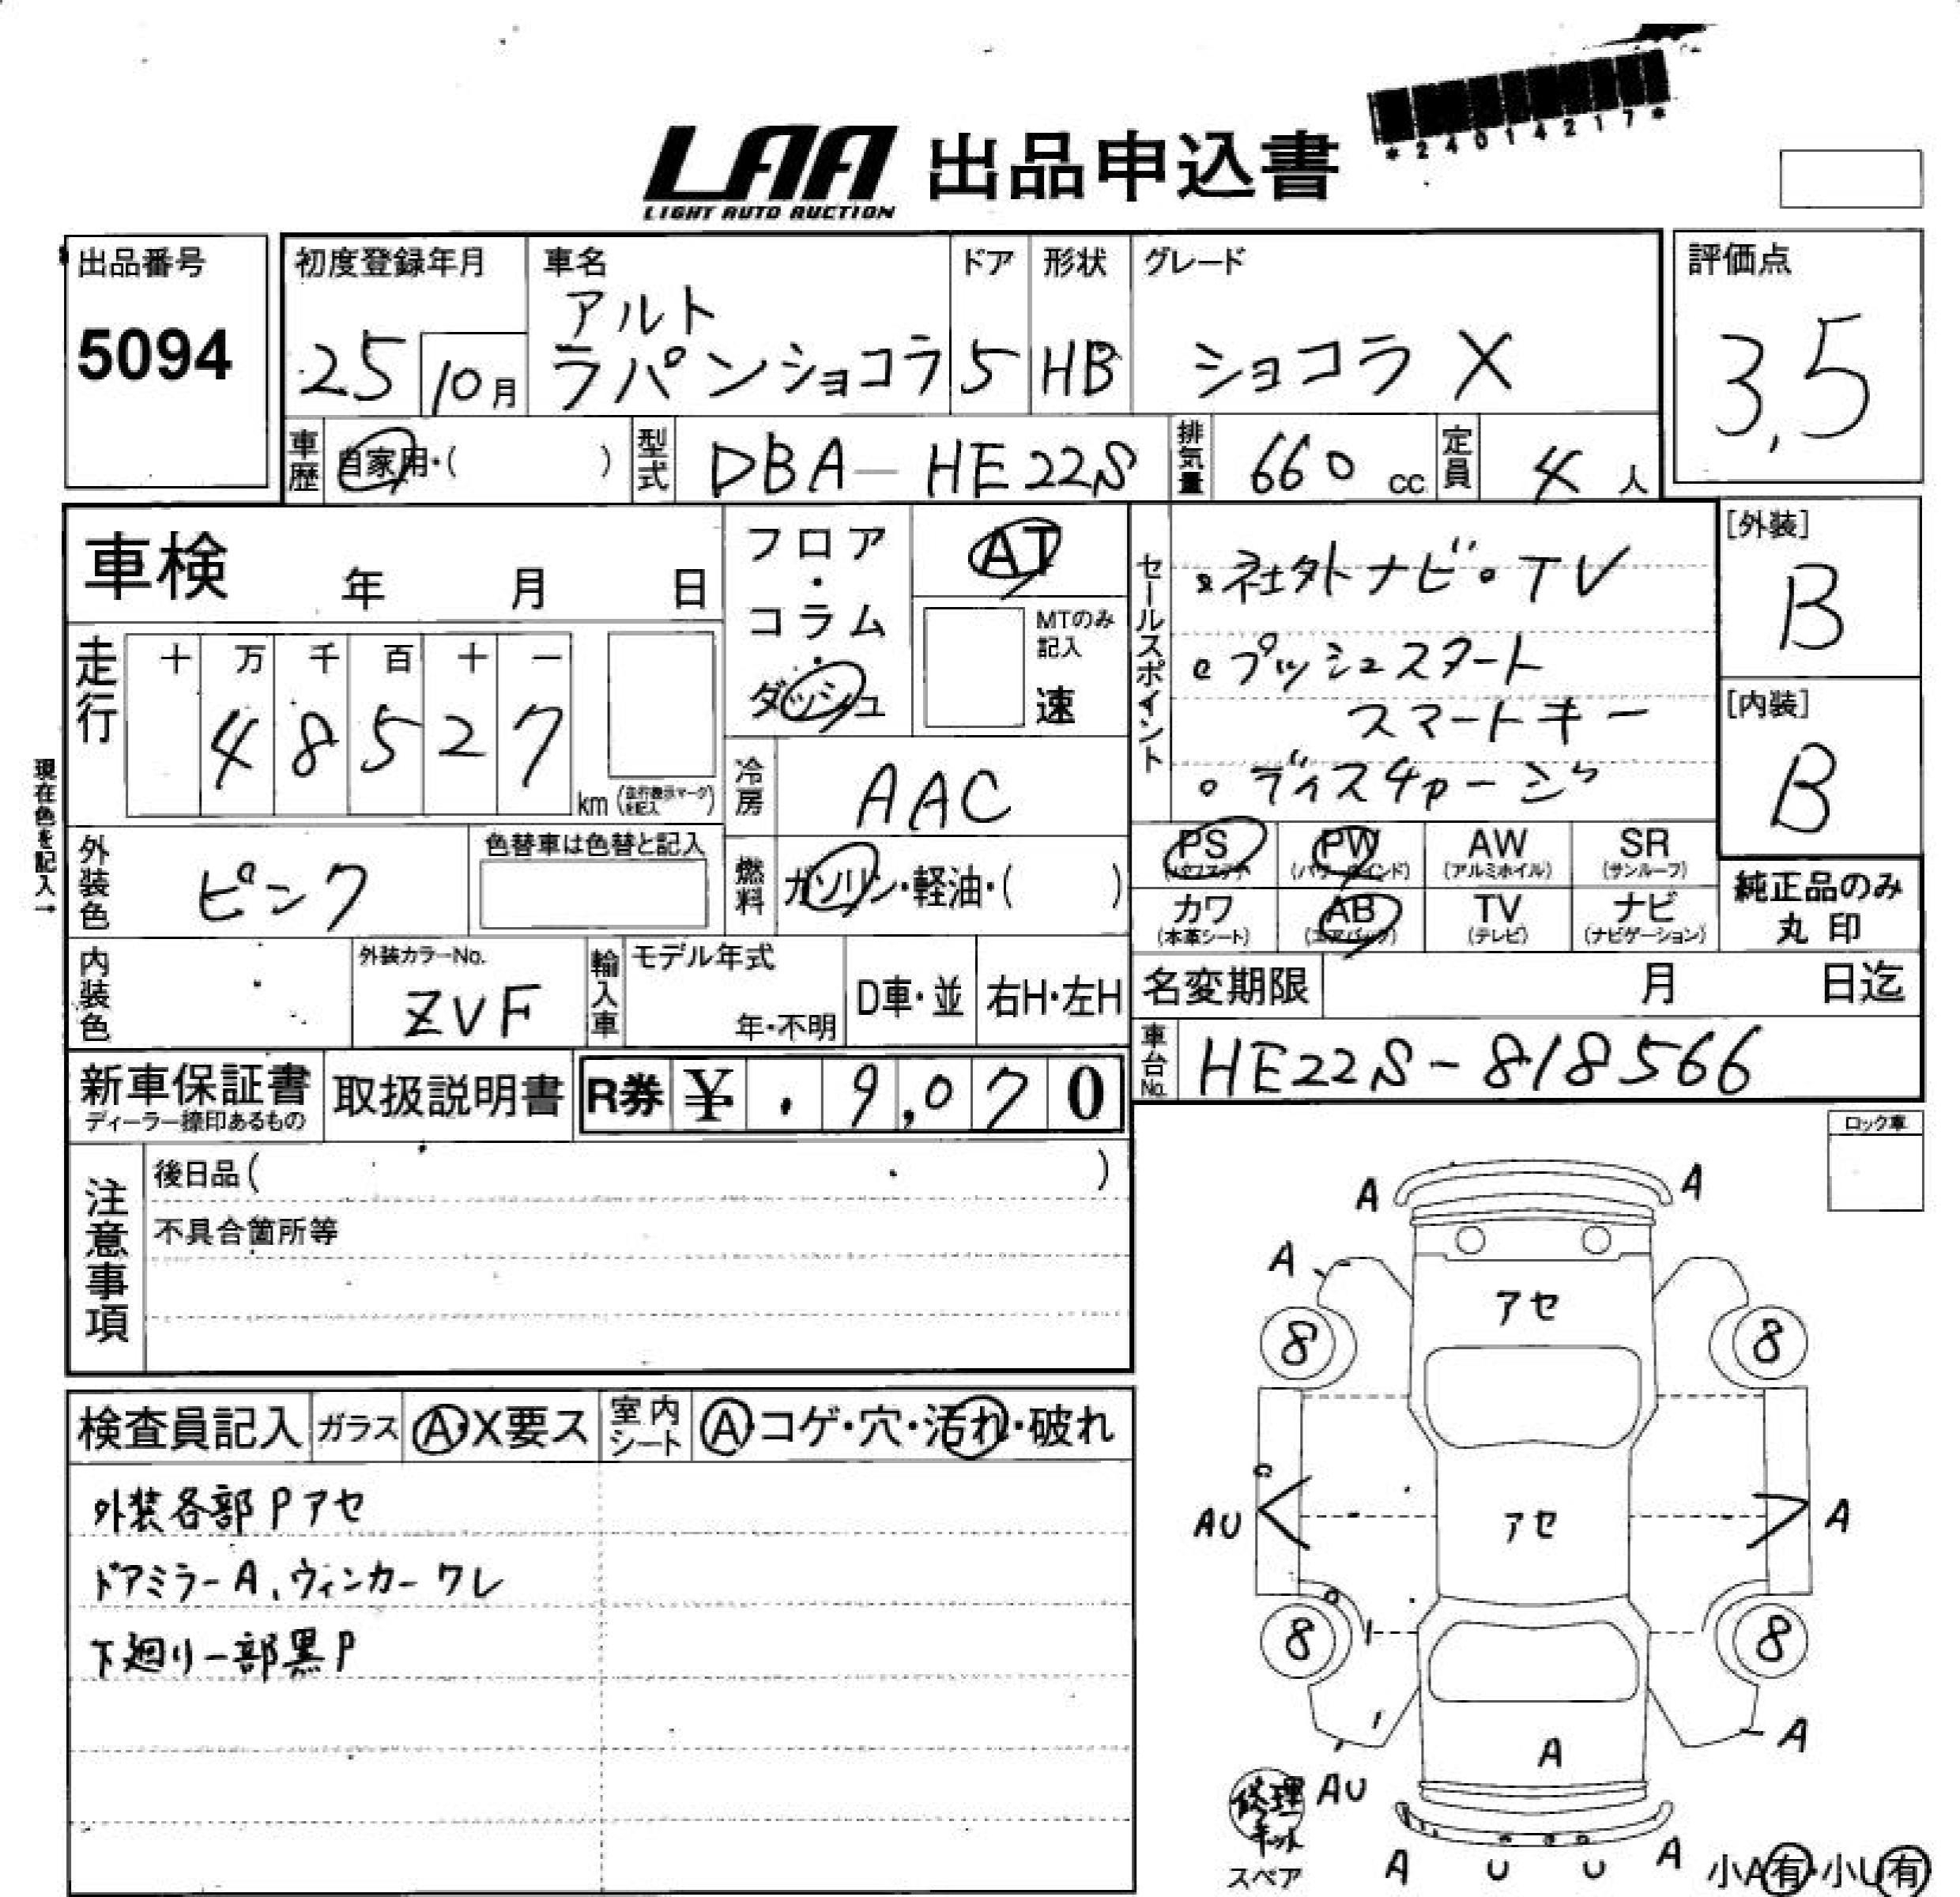 *24014217*
LAA 出品申込書
LIGHT AUTO AUCTION
出品番号
5094
初度登録年月
25
10月
車名
アルト
ラパンショコラ
ドア
5
形状
HB
グレード
ショコラ X
評価点
3,5
車歴
自家用・( )
型式
DBA-HE22S
排気量
660 cc
定員
4 人
車検
年 月 日
走行
十 万 千 百 十 一
4 8 5 2 7
km (走行表示マークを記入)
現在色を記入→
外装色
ピンク
色替車は色替と記入
内装色
外装カラーNo.
ZVF
フロア
・
コラム
・
ダッシュ
AT
MTのみ
記入
速
冷房
AAC
燃料
ガソリン・軽油・( )
輸入車
モデル年式
年・不明
D車・並
右H・左H
セールスポイント
・社外ナビ・TV
・プッシュスタート
スマートキー
・ディスチャージ
[外装]
B
[内装]
B
PS
(パワステ)
PW
(パワーウインド)
AW
(アルミホイル)
SR
(サンルーフ)
カワ
(本革シート)
AB
(エアバック)
TV
(テレビ)
ナビ
(ナビゲーション)
純正品のみ
丸印
名変期限
月 日迄
車台No.
HE22S-818566
新車保証書
ディーラー捺印あるもの
取扱説明書
R券 ¥ . 9,070
注意事項
後日品( )
不具合箇所等
ロック車
検査員記入
ガラス
A・X要ス
室内
シート
A・コゲ・穴・汚れ・破れ
外装各部Pアセ
ドアミラーA、ウィンカーワレ
下廻り一部黒P
A A
A
アセ
8 8
AU アセ A
8 8
A
A
AU
修理
キット
スペア
A U U A
小A有・小U有